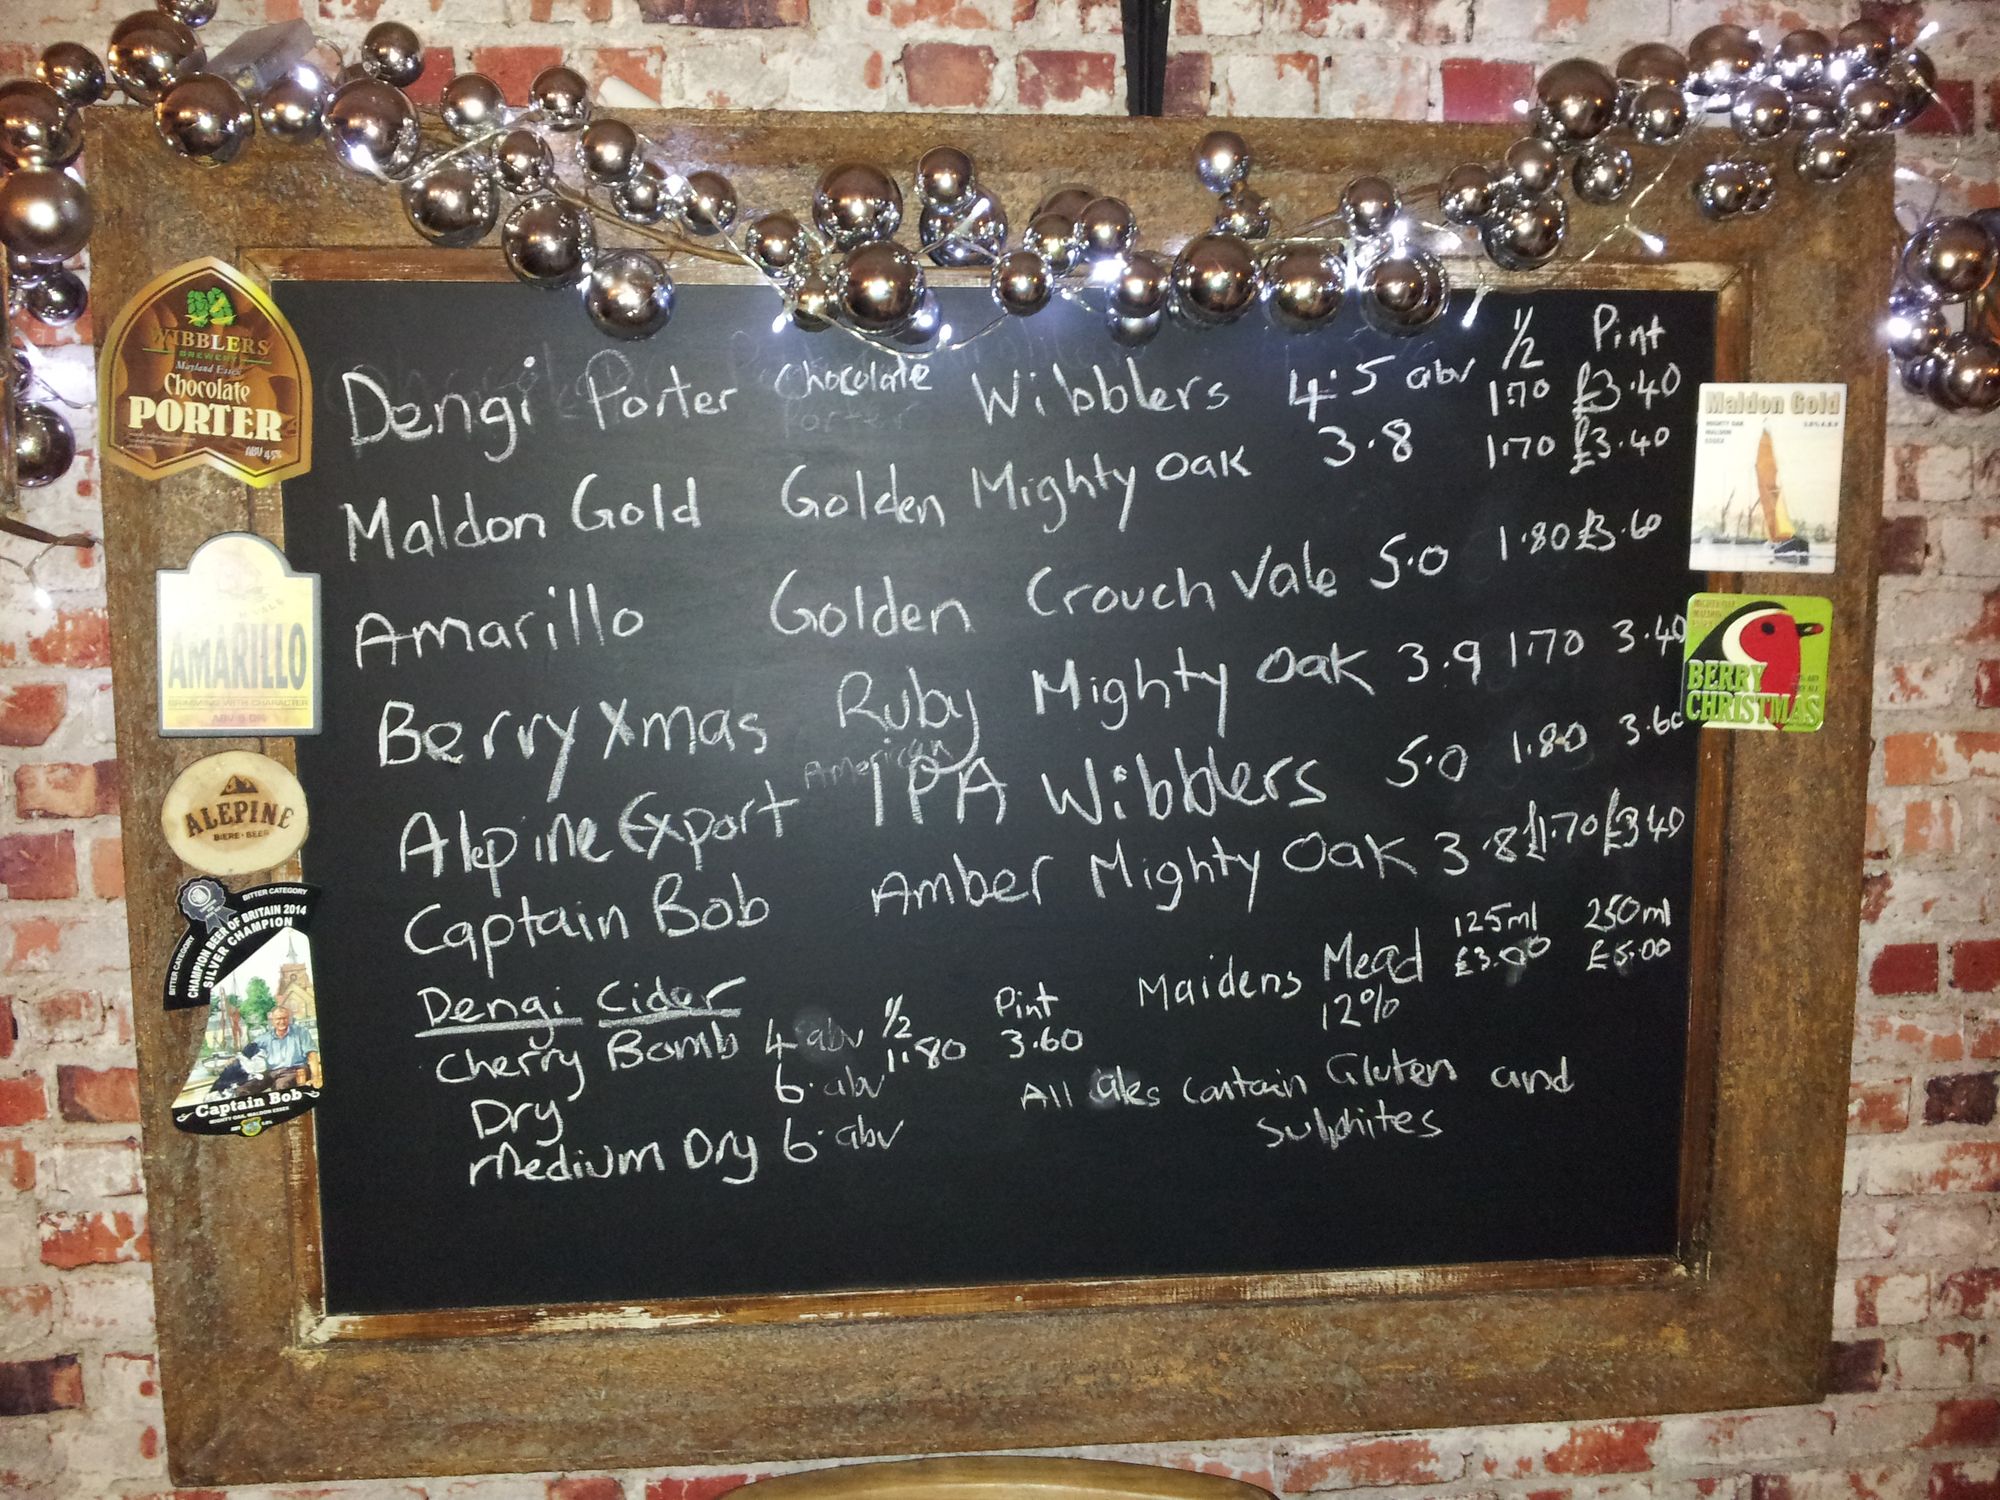 1/2 Pint
Dengi Porter Chocolate Wibblers 4.5 abv 1.70 £3.40
Maldon Gold Golden Mighty Oak 3.8 1.70 £3.40
Amarillo Golden Crouch Vale 5.0 1.80 £3.60
Berry Xmas Ruby Mighty Oak 3.9 1.70 3.40
American
Alepine Export IPA Wibblers 5.0 1.80 3.60
Captain Bob Amber Mighty Oak 3.8 £1.70 £3.40
125ml 250ml
Maidens Mead £3.00 £5.00
12%
Dengi Cider
1/2 Pint
Cherry Bomb 4 abv 1.80 3.60
Dry 6. abv
Medium Dry 6. abv
All ales contain Gluten and
sulphites
WIBBLERS
BREWERY
Mayland Essex
Chocolate
PORTER
ABV 4.5%
AMARILLO
BRIMMING WITH CHARACTER
ALEPINE
BIERE · BEER
BITTER CATEGORY
BITTER CATEGORY
CHAMPION BEER OF BRITAIN 2014
SILVER CHAMPION
Captain Bob
MIGHTY OAK, MALDON ESSEX
Maldon Gold
MIGHTY OAK
MALDON
ESSEX
BERRY
CHRISTMAS